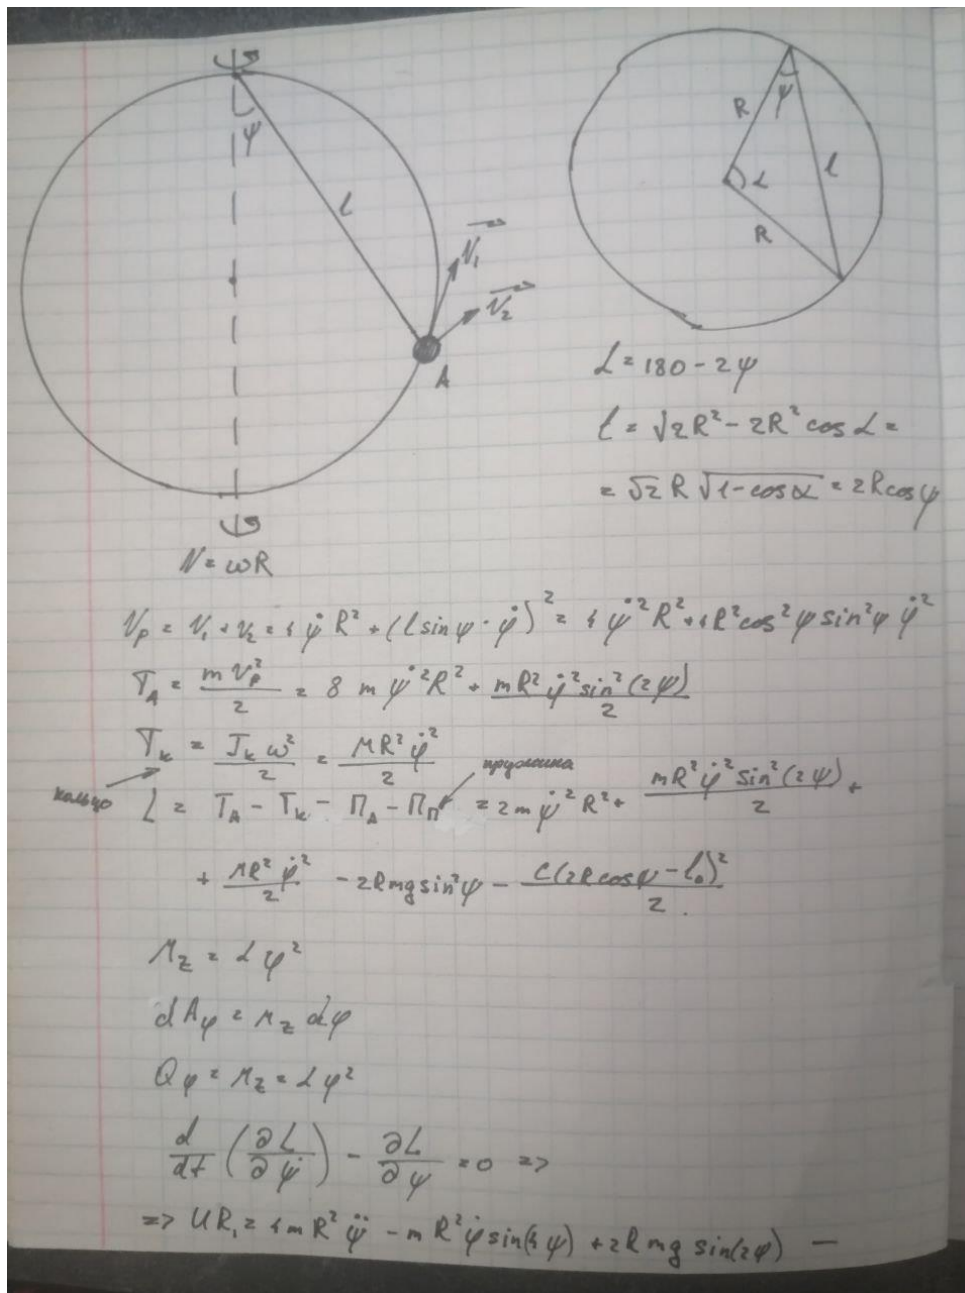 ψ
l
V₁
V₂
A
R
ψ
l
α
R
α = 180 - 2ψ
l = √2R² - 2R² cos α =
= √2 R √1-cosα = 2R cosψ
V = ωR
Vp = V₁ + V₂ = 4 ψ̇ R² + (l sin ψ · φ̇)² = 4 ψ̇² R² + 4R² cos² ψ sin² ψ φ̇²
T_A = m Vp² / 2 = 8 m ψ̇² R² + mR² φ̇² sin² (2ψ) / 2
T_k = J_k ω² / 2 = MR² φ̇² / 2
пружина
кольцо
L = T_A - T_k - П_A - П_п = 2 m ψ̇² R² + mR² φ̇² sin² (2ψ) / 2 +
+ MR² φ̇² / 2 - 2Rmg sin² ψ - c(2R cos ψ - l₀)² / 2.
M_z = α φ²
dA_φ = M_z dφ
Q_φ = M_z = α φ²
d/dt (∂L/∂ψ̇) - ∂L/∂ψ = 0 =>
=> UR₁ = 4 m R² ψ̈ - m R² φ̇ sin(4ψ) + 2R mg sin(2ψ) -